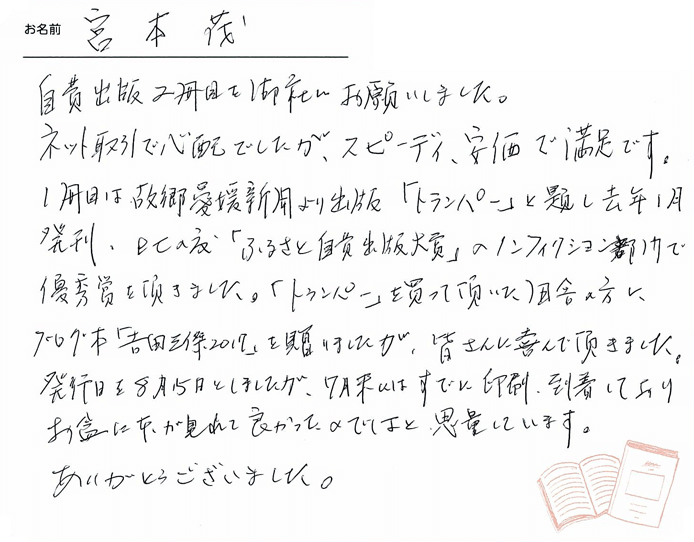 お名前 宮本 茂
自費出版2冊目を御社にお願いしました。
ネット取引で心配でしたが、スピーディ、安価で満足です。
1冊目は故郷愛媛新聞より出版「トランパー」と題し去年1月
発刊、この度「ふるさと自費出版大賞」のノンフィクション部門で
優秀賞を頂きました。「トランパー」を買って頂いた田舎の方に、
ブログ本「吉田三傑2017」を贈りましたが、皆さんに喜んで頂きました。
発行日を8月15日としましたが、7月末にはすでに印刷、到着しており
お盆に本が見れて良かったのではと思量しています。
ありがとうございました。